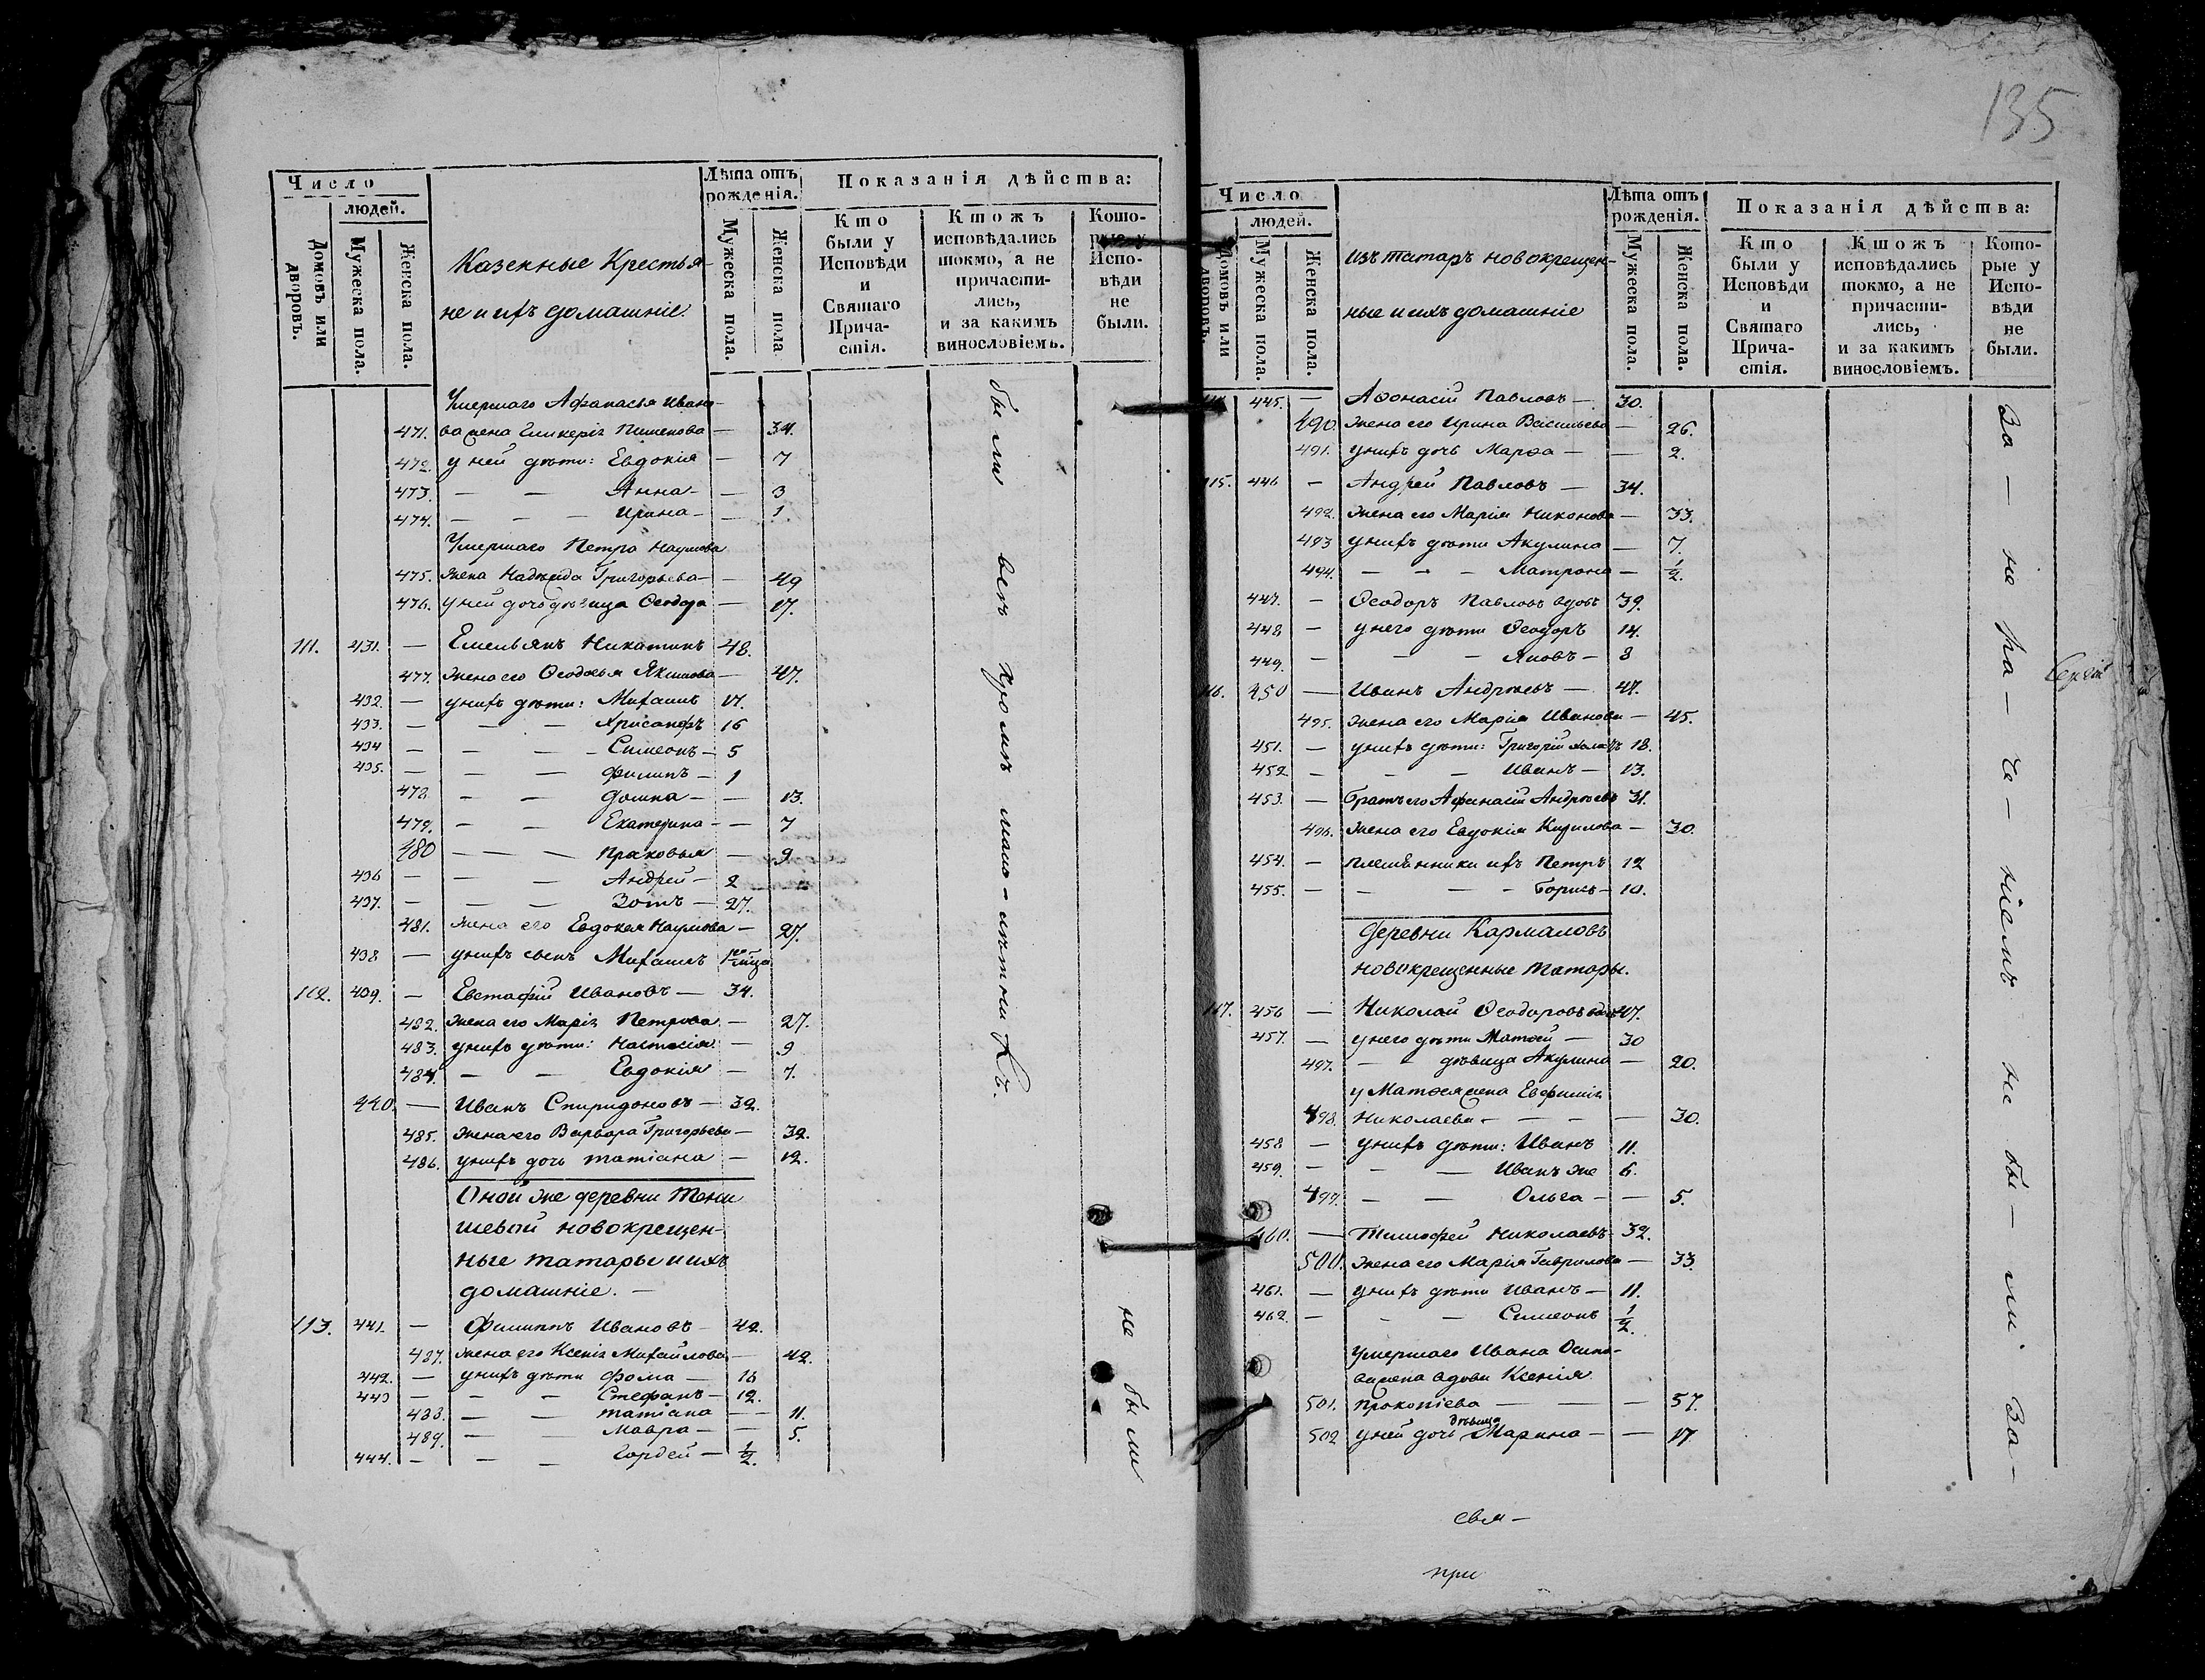 135
Число
людей.
Домовъ или дворовъ.
Мужеска пола.
Женска пола.
Казенные Крестья-
не и ихъ домашніе
Лѣта отъ рожденія.
Мужеска пола.
Женска пола
Показанія дѣйства:
Кто были у Исповѣди и Святаго Прича-стія.
Ктожъ исповѣдались токмо, а не причасти-лись, и за какимъ винословіемъ.
Кото-рые у Испо-вѣди не были.
Умершаго Афанасья Ивано-
471. ва жена Гликерія Пименова — 34.
472. у ней дѣти: Евдокія — 7
473. — — Анна — — 3
474. — — — Ирина — — 1
Умершаго Петра Наумова
475. жена Надежда Григорьева — — 49
476. у ней дочь дѣвица Ѳеодора — 17.
111. 431. — Емельянъ Никитинъ 48.
477. жена его Ѳеодосья Якимова — 47.
432. — у нихъ дѣти: Михаилъ 17.
433. — — — Хрисанфъ 16
434 — — — Симеонъ — 5
435. — — — Филипъ — 1
478 — — Домна — — 13.
479. — — Екатерина — — 7
480 — — — Праковья — 9
436 — — — Андрей — 2
437. — — — Зотъ — 27.
481. жена его Евдокея Наумова — 27.
438 — у нихъ сынъ Михаилъ
112. 439. — Евстафій Ивановъ — 34.
482. жена его Марія Петрова — 27.
483. у нихъ дѣти: Настасія — 9
484. — — Евдокія — 7.
440. — Иванъ Спиридоновъ — 32.
485. жена его Варвара Григорьева — 32.
486. у нихъ дочь Татіана — 12.
Оной же деревни Тени
шевой новокрещен-
ные татары и ихъ
домашніе. —
113. 441. — Филиппъ Ивановъ 42.
487. жена его Ксенія Михайлова — 42.
442. — у нихъ дѣти Фома — 16
443 — — — Стефанъ — 12.
488. — — Татіана — — 11.
489. — — Мавра — — 5.
444. — — — Гордей — 1/2.
были всѣ кромѣ мало-лѣтнихъ.
не были
Число
людей.
Домовъ или дворовъ.
Мужеска пола.
Женска пола.
Изъ татаръ новокрещен-
ные и ихъ домашніе
Лѣта отъ рожденія.
Мужеска пола.
Женска пола.
Показанія дѣйства:
Кто были у Исповѣди и Святаго Прича-стія.
Ктожъ исповѣдались токмо, а не причасти-лись, и за какимъ винословіемъ.
Кото-рые у Испо-вѣди не были.
445. — Аѳонасій Павловъ — 30.
490. жена его Ирина Васильева — 26.
491. у нихъ дочь Марѳа — — 2.
115. 446 — Андрей Павловъ — 34.
492. жена его Марія Никонова — 33.
493 у нихъ дѣти Акулина — 7.
494. — — — Матрона — 1/2.
447. — Ѳеодоръ Павловъ вдовъ 39.
448 — у него дѣти Ѳеодоръ 14.
449. — — — Яковъ — 8
116. 450 — Иванъ Андреевъ — 47.
495. жена его Марія Иванова — 45.
451. — у нихъ дѣти: Григорій холостъ 18.
452 — — — Иванъ — 13.
453. — братъ его Афанасій Андреевъ 31.
496. жена его Евдокія Кирилова — 30.
454. — племянники ихъ Петръ 12
455. — — — Борисъ — 10.
Деревни Кармаловъ
новокрещенные татары.
117. 456 — Николай Ѳеодоровъ вдовъ 47.
457. — у него дѣти Матѳей — 30
497. — дѣвица Акулина — 20.
у Матѳея жена Евфимія
498. Николаева — — — — 30.
458 — у нихъ дѣти: Иванъ 11.
459. — — — Иванъ же 6.
499. — — Ольга — — 5.
460. — Тимофей Николаевъ 32.
500. жена его Марія Гаврилова — 33.
461. — у нихъ дѣти Иванъ — 11.
462. — — — Симеонъ 1/2.
умершаго Ивана Осипо-
ва жена вдова Ксенія
501. Прокопіева — — — 57.
502 у ней дочь дѣвица Марина — — 17
За — не ра — че — ніемъ не бы — ли. За —
Сергій
свя —
при